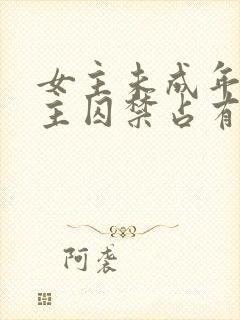 女主未成年
主囚禁占有
阿袭